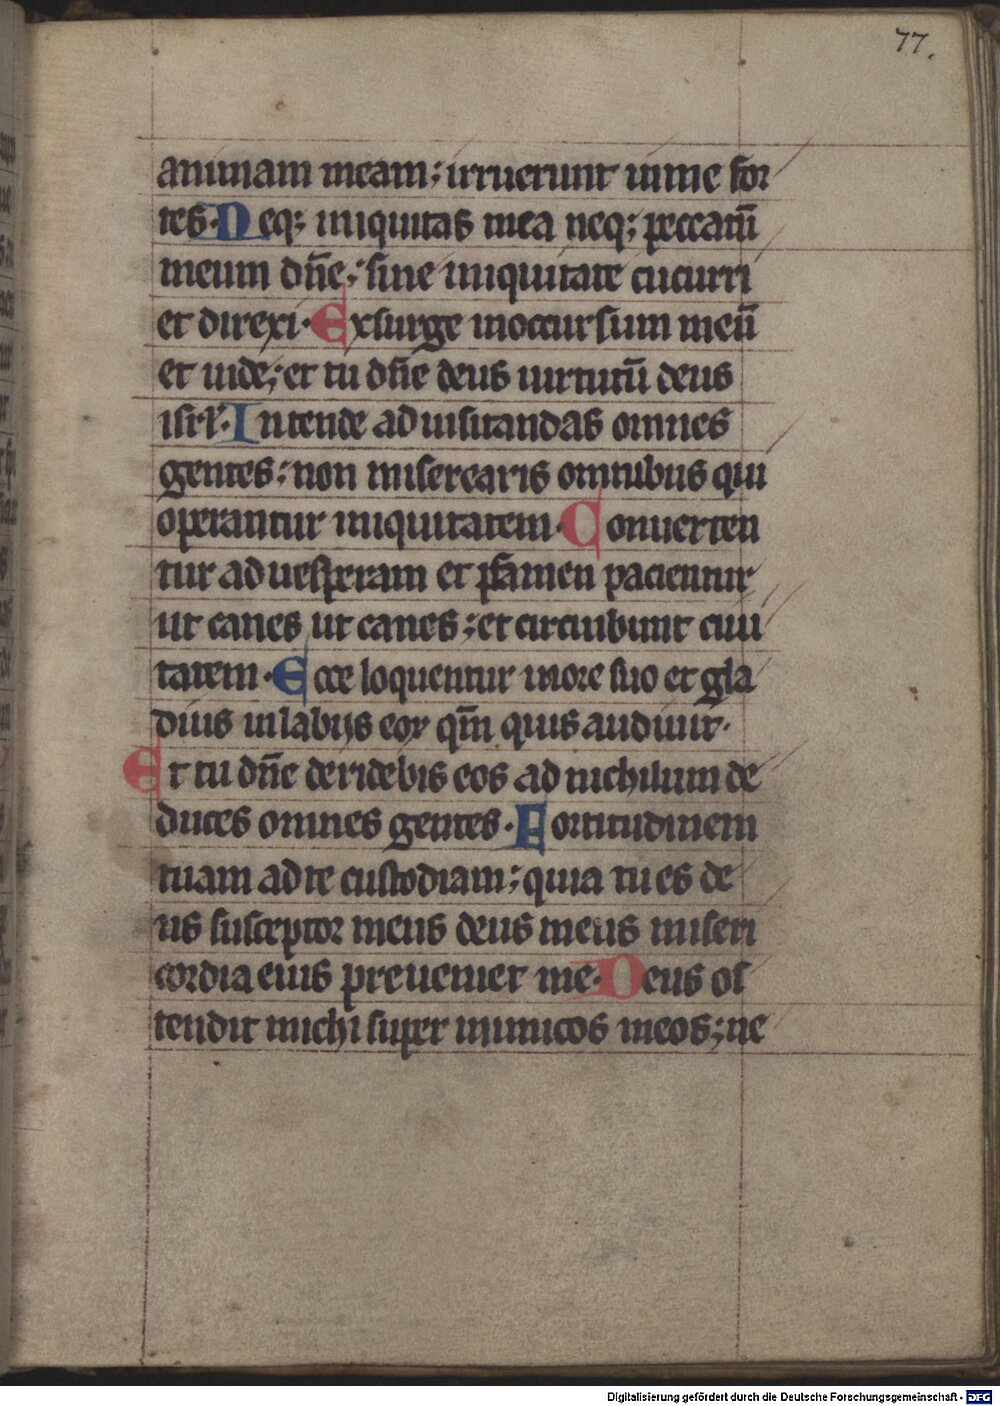 77.
animam meam; irruerunt in me for
tes. Neq; iniquitas mea neq; peccatū
meum dn̄e; sine iniquitate cucurri
et direxi. Exsurge inoccursum meū
et uide; et tu dn̄e deus uirtutū deus
isrl̄. Intende ad uisitandas omnes
gentes; non miserearis omnibus qui
operantur iniquitatem. Conuerten
tur ad uesperam et famen pacientur
ut canes ut canes; et circuibunt ciui
tatem. Ecce loquentur in ore suo et gla
dius in labijs eoꝝ qm̄ quis audiuit.
Et tu dn̄e deridebis eos ad nichilum de
duces omnes gentes. Fortitudinem
tuam ad te custodiam; quia tu es de
us susceptor meus deus meus miseri
cordia eius preueniet me. Deus os
tendit michi super inimicos meos; ne
Digitalisierung gefördert durch die Deutsche Forschungsgemeinschaft - DFG